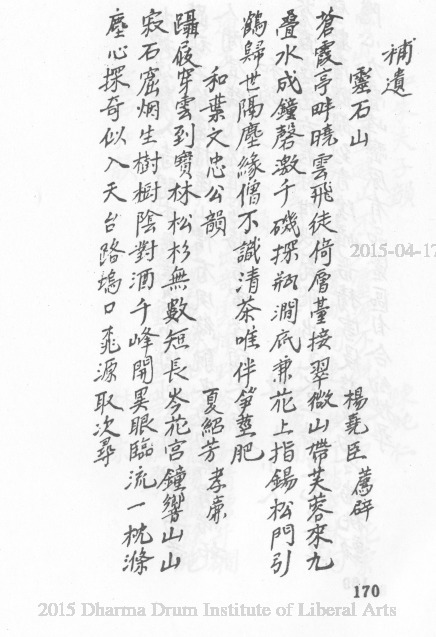 補遺
靈石山 楊堯臣 薦辟
蒼霞亭畔曉雲飛徒倚層臺接翠微山帶芙蓉來九
疊水成鐘磬激千磯探瓶澗底兼花上指錫松門引
鶴歸世隔塵緣僧不識清茶唯伴筍蔬肥
和葉文忠公韻 夏紹芳 孝廉
躡屐穿雲到寶林松杉無數短長岑花宮鐘響山山
寂石窟烟生樹樹陰對酒千峰開異眼臨流一枕滌
塵心探奇似入天台路塢口桃源取次尋
170
2015-04-17
2015 Dharma Drum Institute of Liberal Arts